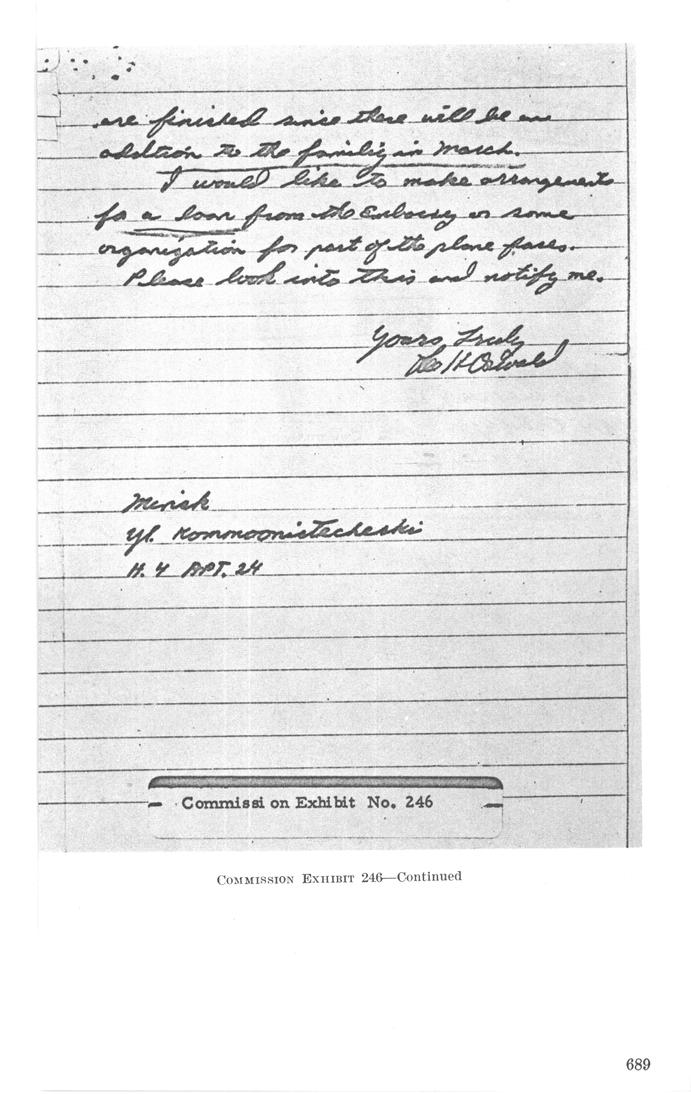 are finished since there will be an
addition to the family in March.
I would like to make arrangements
for a loan from the Embassy or some
organization for part of the plane fares.
Please look into this and notify me.
Yours Truly
Lee H Oswald
Minsk
Yl. Kommoonistecheski
H. 4 APT. 24
Commission Exhibit No. 246
COMMISSION EXHIBIT 246—Continued
689